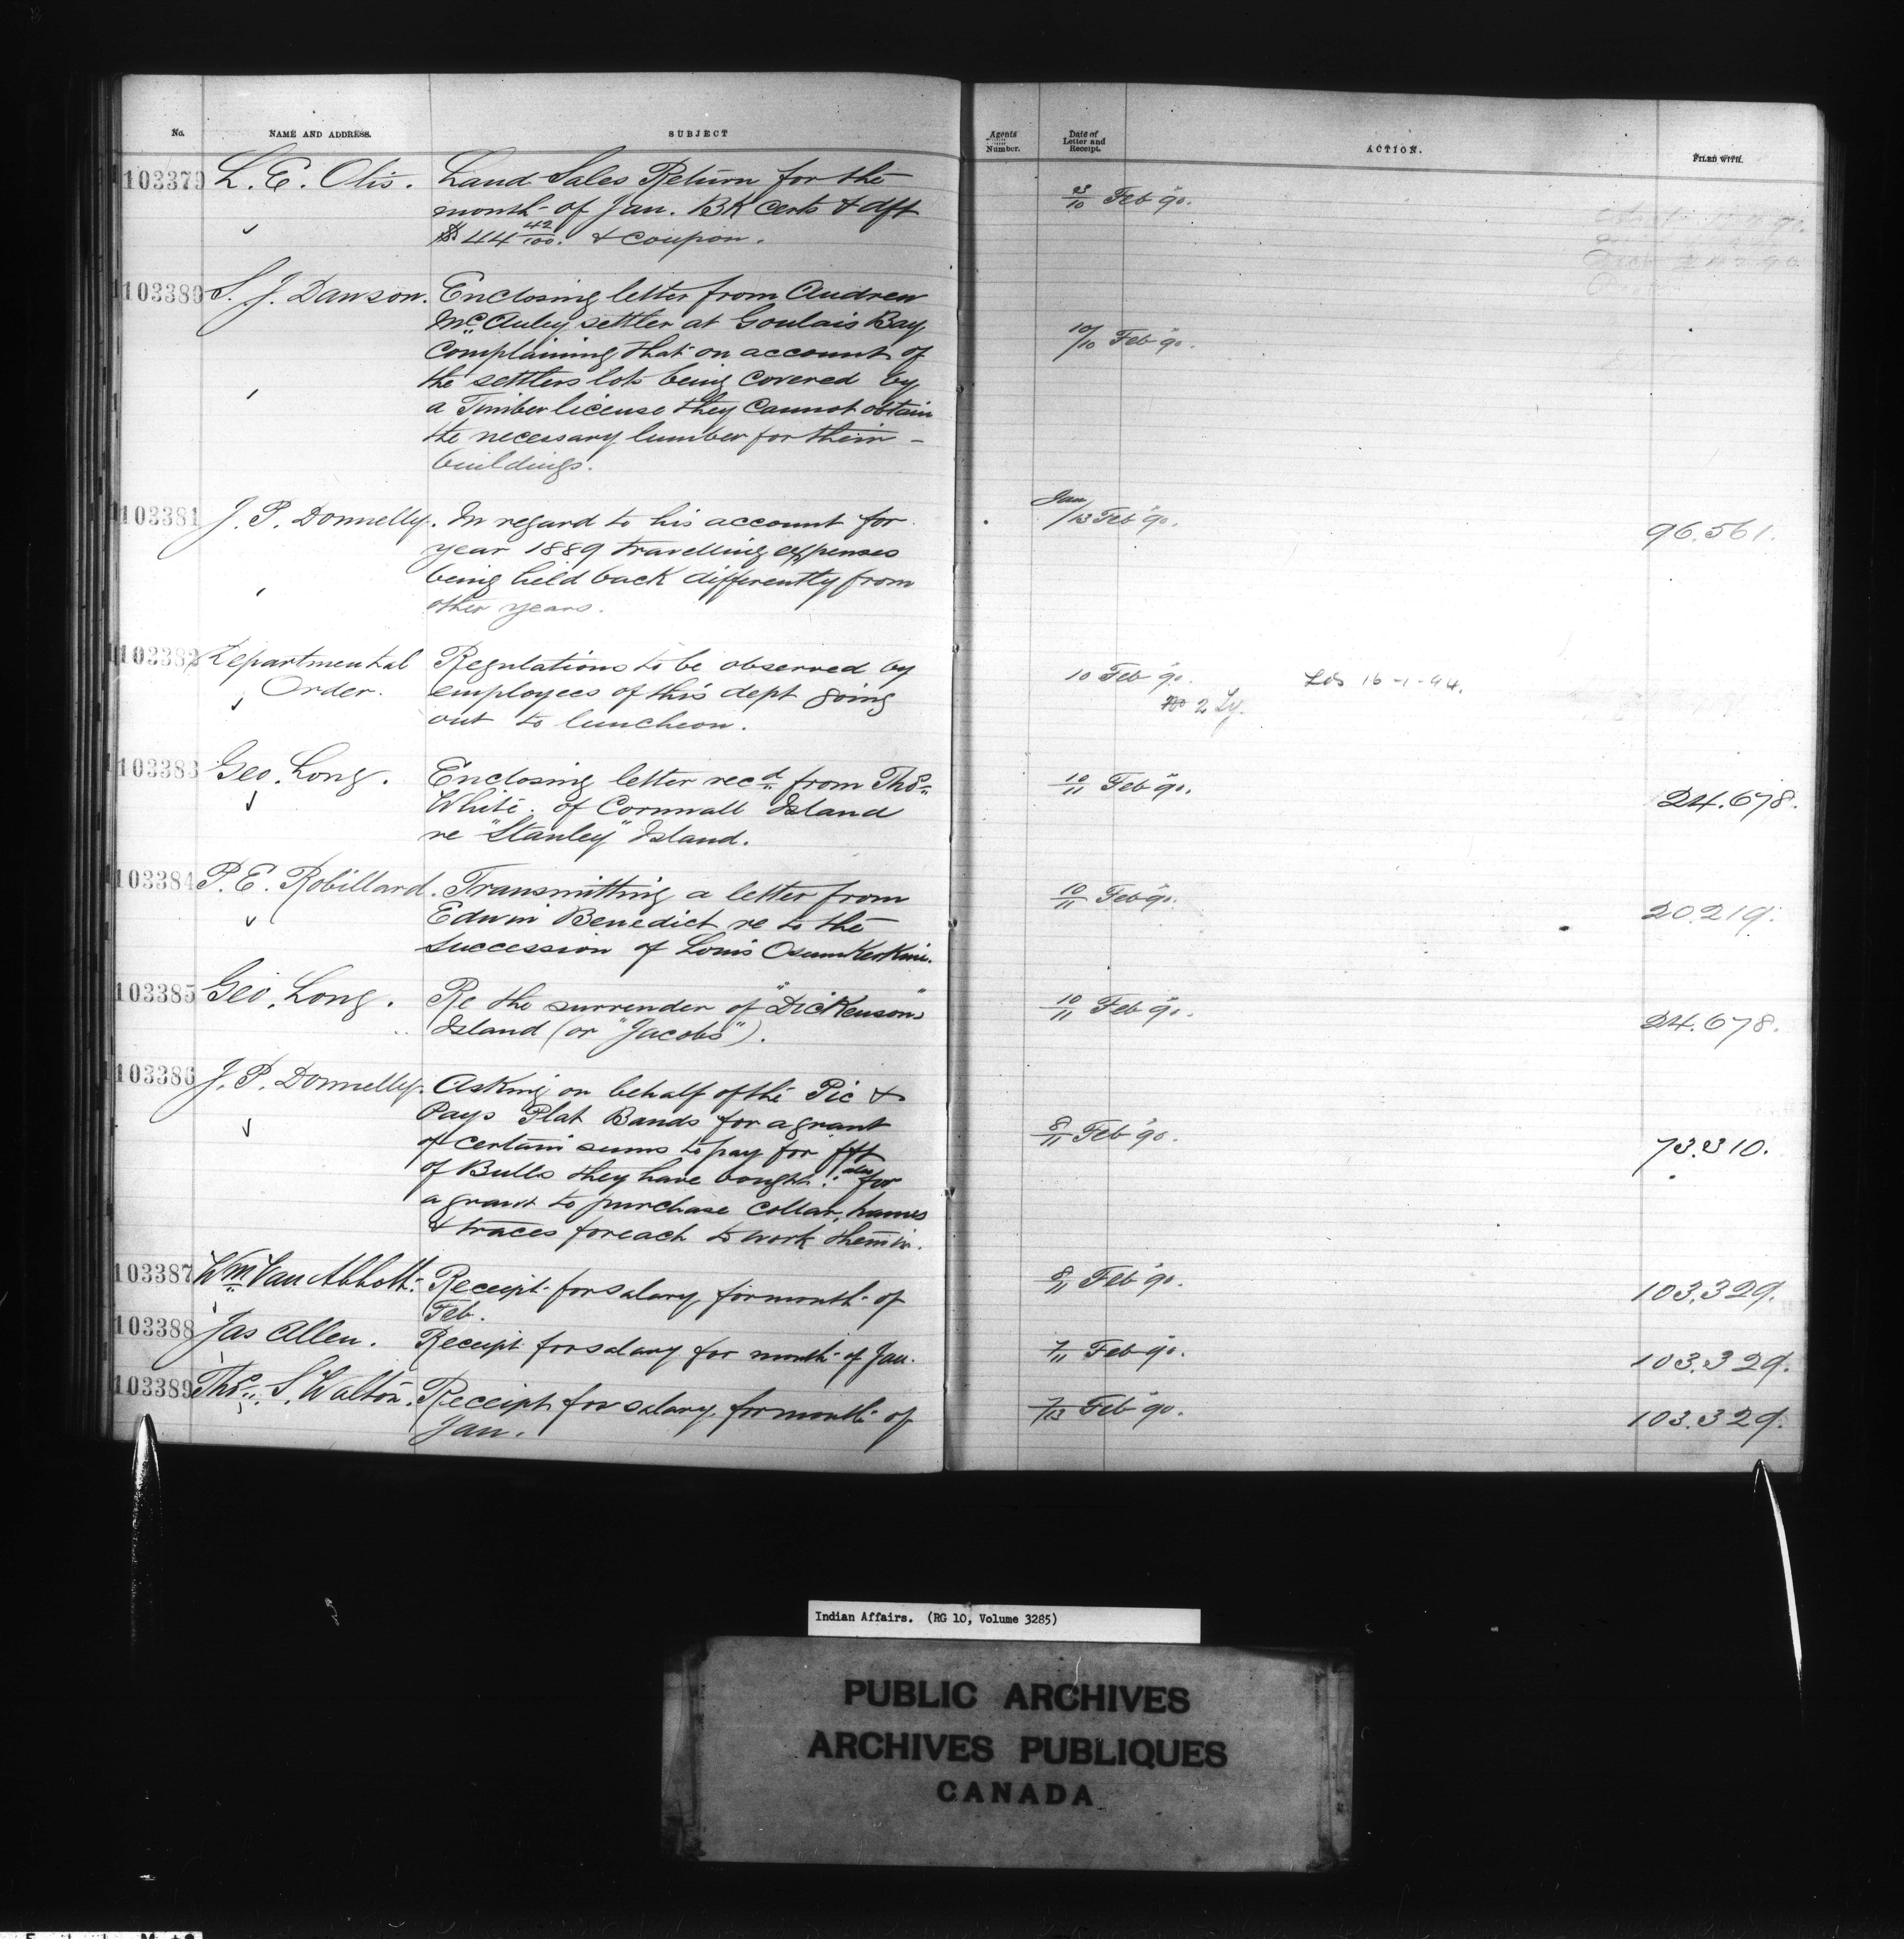 No. NAME AND ADDRESS. SUBJECT
103379 L. E. Otis. Land Sales Return for the
month of Jan. BK Certs & dft
$44 42/100. & Coupon.
103380 S. J. Dawson. Enclosing letter from Andrew
McAuley settler at Goulais Bay
Complaining that on account of
the settlers lots being Covered by
a Timber license they Cannot obtain
the necessary lumber for their
buildings.
103381 J. P. Donnelly. In regard to his account for
year 1889 travelling expenses
being held back differently from
other years.
103382 Departmental Regulations to be observed by
Order. employees of this dept going
out to luncheon.
103383 Geo. Long. Enclosing letter recd from Thos
White of Cornwall Island
re "Stanley" Island.
103384 P. E. Robillard. Transmitting a letter from
Edwin Benedict re to the
Succession of Louis
103385 Geo. Long. Re the surrender of "Dickenson's"
Island (or "Jacobs").
103386 J. P. Donnelly. Asking on behalf of the Pic &
Pays Plat Bands for a grant
of certain sums to pay for frt
of Bulls they have bought: also for
a grant to purchase Collar, hames
& traces for each to work them in.
103387 Wm Van Abbott. Receipt for salary for month of
Feb.
103388 Jas Allen. Receipt for salary for month of Jan.
103389 Thos. S. Walton. Receipt for salary for month of
Jan.
Agents Number. Date of Letter and Receipt. ACTION. FILED WITH.
/10 Feb 90.
10/10 Feb 90.
Jan/13 Feb 90. 96.561.
10 Feb 90. 16-1-94.
2 Ly.
10/11 Feb 90. 24.678.
10/11 Feb 90. 20.219.
10/11 Feb 90. 24.678.
8/11 Feb 90. 73.310.
8/11 Feb 90. 103.329.
7/11 Feb 90. 103.329.
7/13 Feb 90. 103.329.
Indian Affairs. (RG 10, Volume 3285)
PUBLIC ARCHIVES
ARCHIVES PUBLIQUES
CANADA